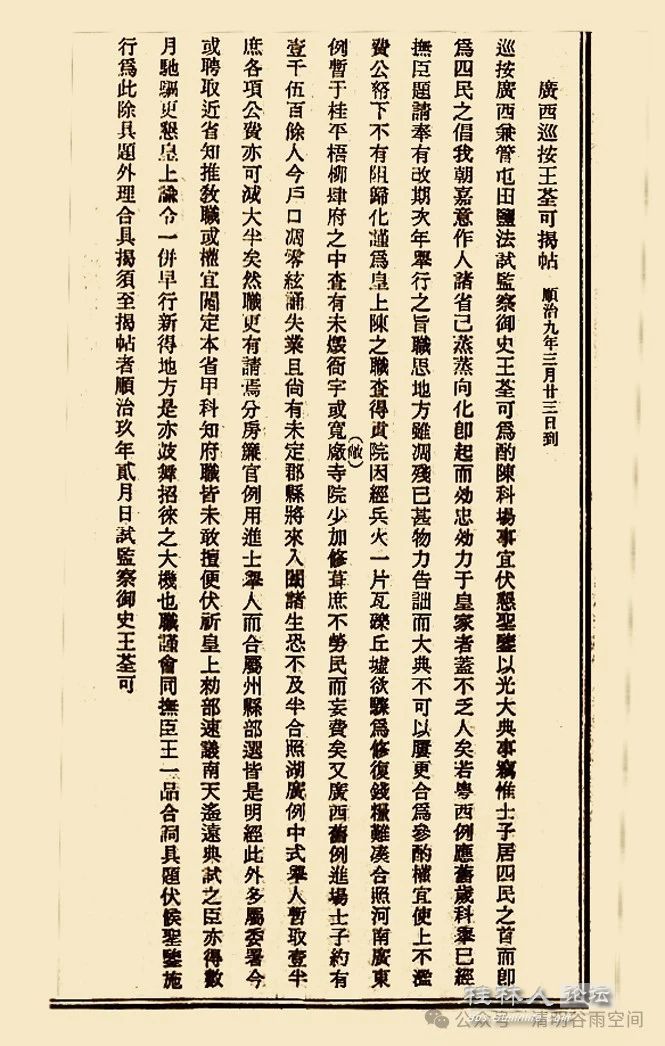 廣西巡按王荃可揭帖 順治九年三月廿三日到
巡按廣西兼管屯田鹽法試監察御史王荃可爲酌陳科場事宜伏懇聖鑒以光大典事竊惟士子居四民之首而卽
爲四民之倡我朝嘉意作人諸省已蒸蒸向化卽起而効忠効力于皇家者蓋不乏人矣若粤西例應舊歲科舉已經
撫臣題請奉有改期次年舉行之旨職思地方雖凋殘已甚物力告詘而大典不可以屢更合爲參酌權宜使上不濫
費公帑下不有阻歸化謹爲皇上陳之職查得貢院因經兵火一片瓦礫丘墟欲驟爲修復錢糧難凑合照河南廣東
例暫于桂平梧柳肆府之中查有未燬衙宇或寬廠(敞)寺院少加修葺庶不勞民而妄費矣又廣西舊例進場士子約有
壹千伍百餘人今戶口凋零絃誦失業且尚有未定郡縣將來入闈諸生恐不及半合照湖廣例中式舉人暫取壹半
庶各項公費亦可減大半矣然職更有請焉分房簾官例用進士舉人而合屬州縣部選皆是明經此外多屬委署今
或聘取近省知推敎職或權宜閱定本省甲科知府職皆未敢擅便伏祈皇上勅部速議南天遙遠典試之臣亦得數
月馳驅更懇皇上諭令一併早行新得地方是亦鼓舞招徠之大機也職謹會同撫臣王一品合詞具題伏候聖鑒施
行爲此除具題外理合具揭須至揭帖者順治玖年貳月日試監察御史王荃可
桂林人論坛
公众号·清明谷雨空间